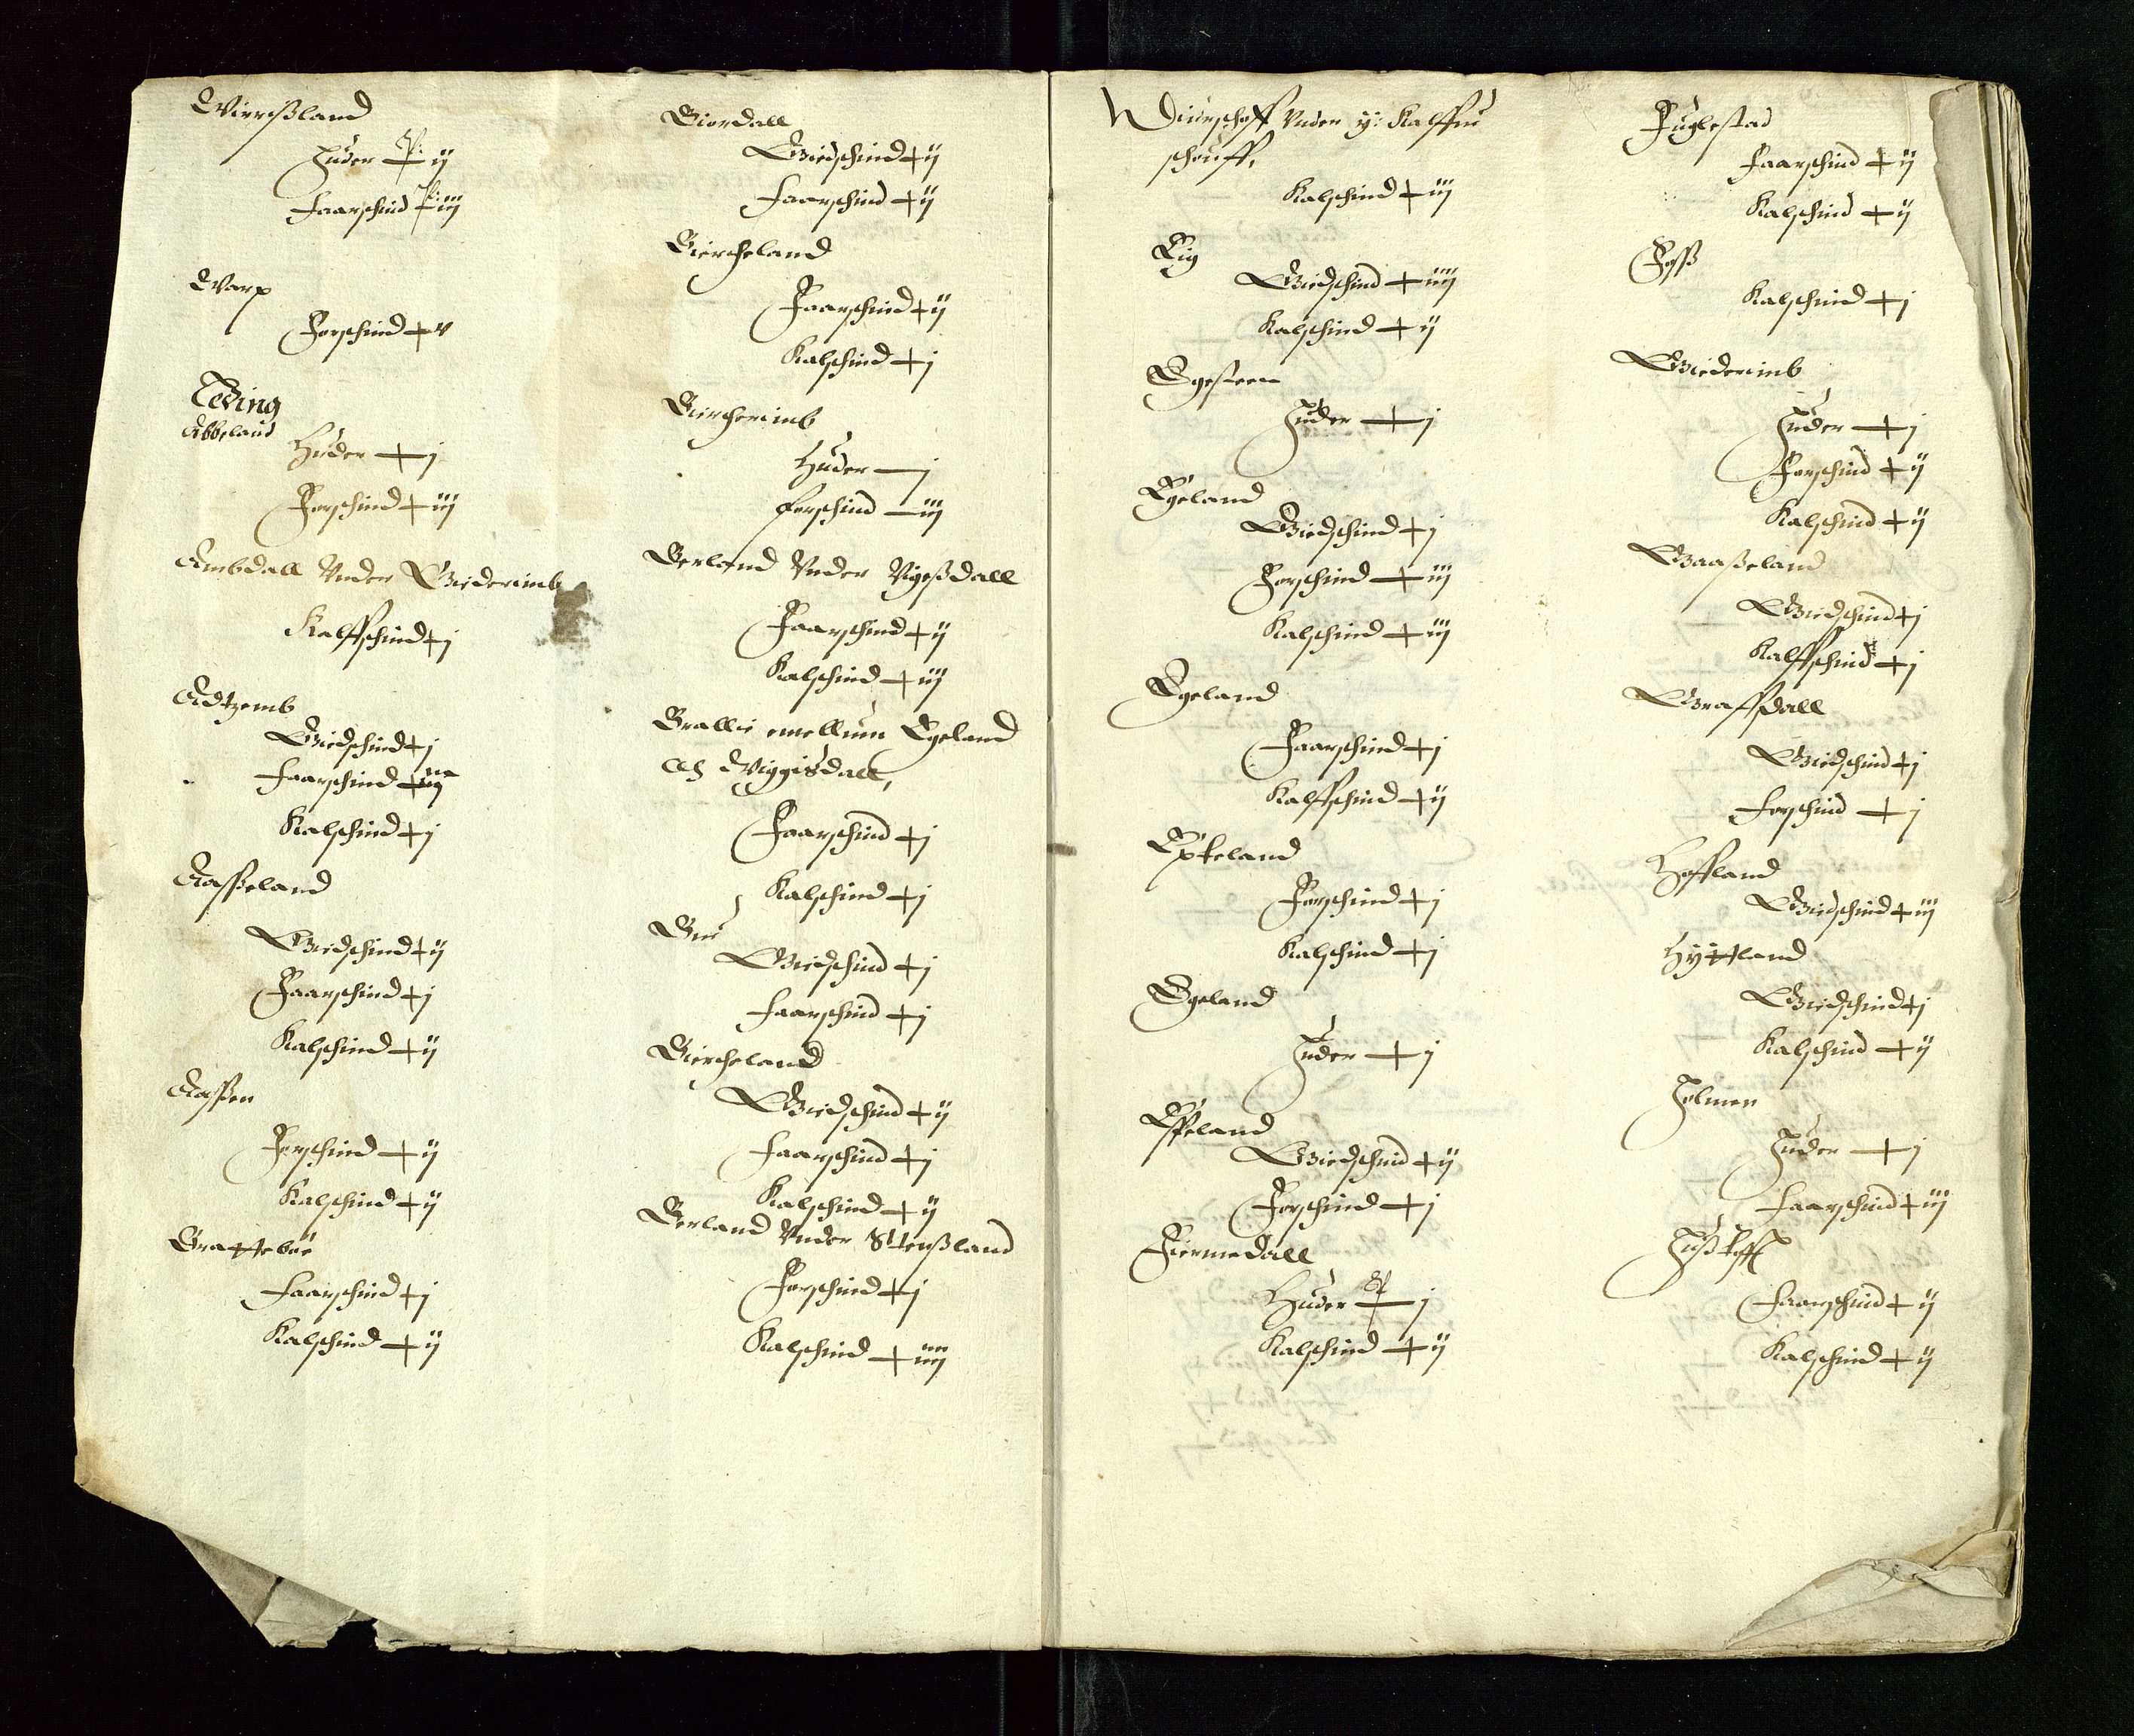 Vierssland
Huder + ij
Faarschind + iij
Varp
Forschind + v
Tving
Abbeland
Huder + j
Forschind + iij
Ambdall Vnder Giederimb
Kalffschind + j
Adtzemb
Giedschind + j
Faarschind +
Kalschind + j
Aasseland
Giedschind + ij
Faarschind + j
Kalschind + ij
Aassen
Forschind + ij
Kalschind + ij
Brattebøe
Faarschind + j
Kalschind + ij
Biordall
Giedschind + ij
Faarschind + ij
Biercheland
Faarschind + ij
Kalschind + j
Bircherimb
Huder — j
Forschind — iij
Berland Vnder Vigessdall
Faarschind + ij
Kalschind + iij
Brallie emellum Egeland
och Viggisdall,
Faarschind + j
Kalschind + j
Bue
Giedschind + j
Faarschind + j
Biercheland
Giedschind + ij
Faarschind + j
Kalschind + ij
Berland Vnder Stenssland
Forschind + j
Kalschind + iiij
Diurschoff Vnder ij: Kalffue
schouff,
Kalschind + iij
Eig
Giedschind + iiij
Kalschind + ij
Egesteen
Huder + j
Egeland
Giedschind + j
Forschind + iij
Kalschind + iij
Egeland
Faarschind + j
Kalffschind + ij
Epteland
Forschind + j
Kalschind + j
Egeland
Huder + j
Espeland
Giedschind + ij
Forschind + j
Fiermedall
Huder + j
Kalschind + ij
Fuglestad
Faarschind + ij
Kalschind + ij
Foss
Kalschind + j
Giederimb
Huder + j
Forschind + ij
Kalschind + ij
Gaasseland
Giedschind + j
Kalffschind + j
Graffdall
Giedschind + j
Forschind + j
Hoffland
Giedschind + iij
Hyttland
Giedschind + j
Kalschind + ij
Holmen
Huder + j
Faarschind + iij
Hustofft
Faarschind + ij
Kalschind + ij